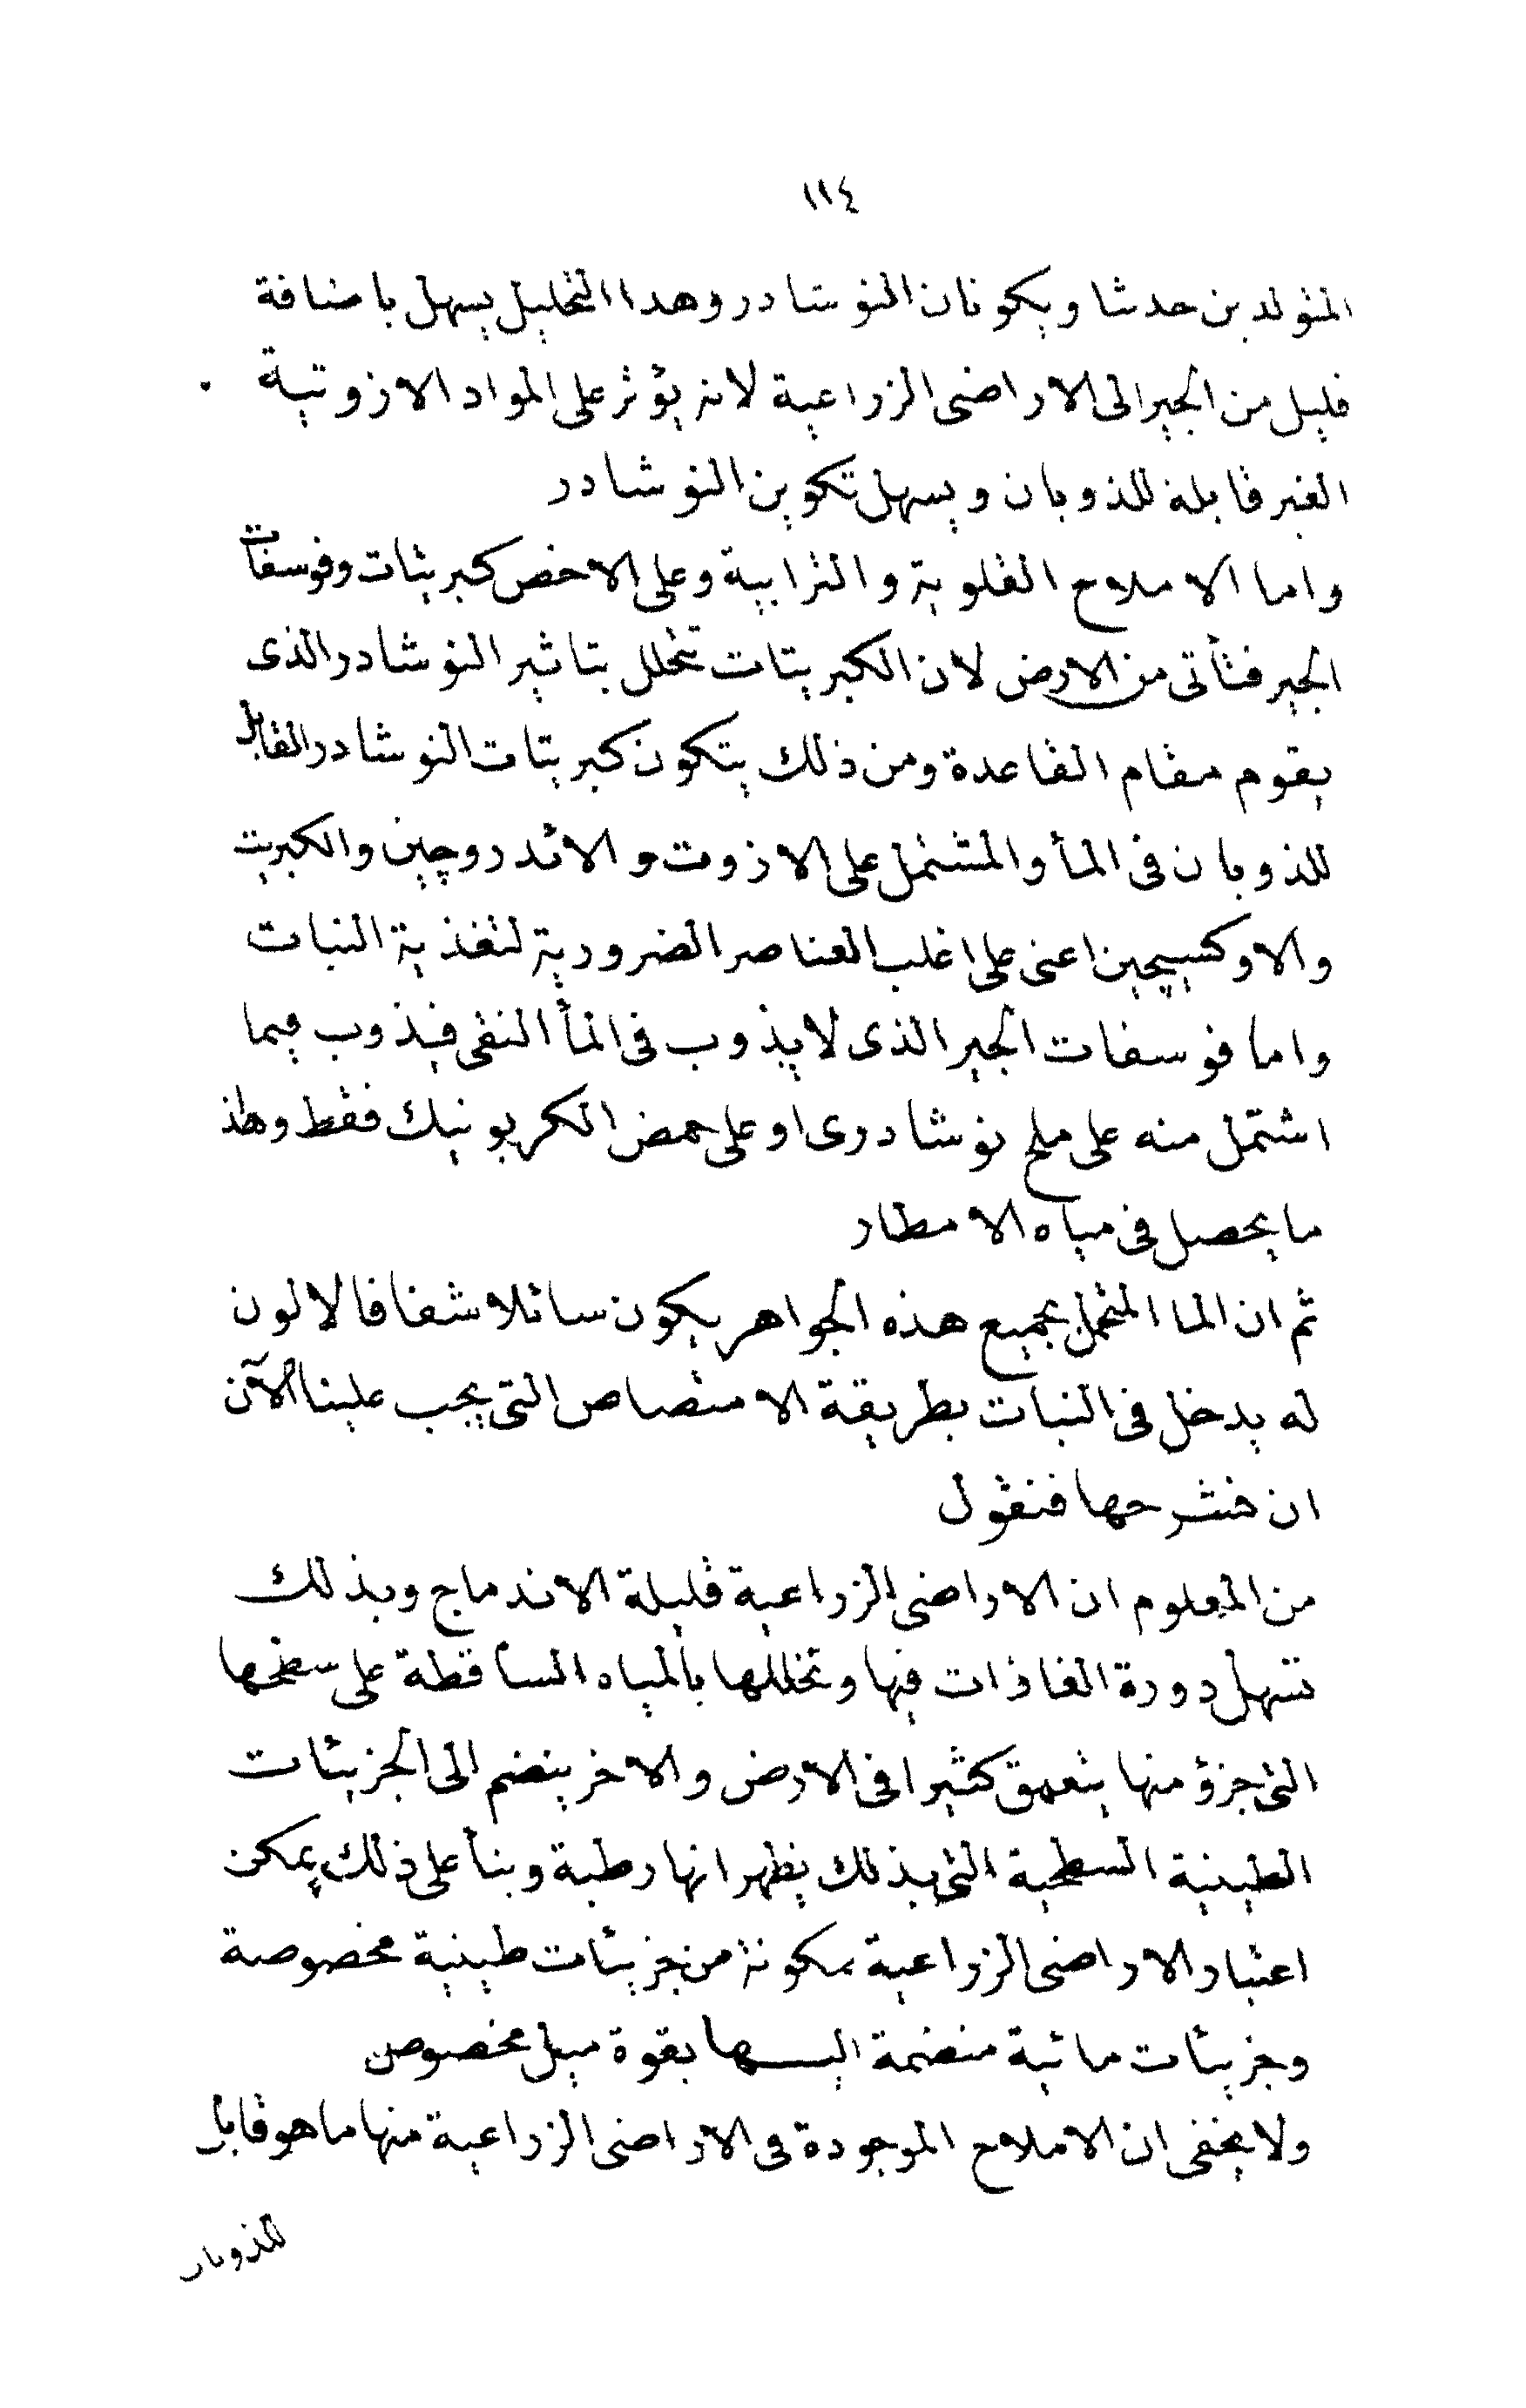 ١١٤
المتولدين حدثا ويكونان النوشادر وهدا التحليل يسهل باضافة
قليل من الجير الى الاراضى الزراعية لانه يؤثر على المواد الازوتية
الغير قابلة للذوبان ويسهل تكوين النوشادر
واما الاملاح القلوية والترابية وعلى الاخص كبريتات وفوسفات
الجير فتأتى من الارض لان الكبريتات تتحلل بتاثير النوشادر الذى
يقوم مقام القاعدة ومن ذلك يتكون كبريتات النوشادر القابل
للذوبان فى المأ والمشتمل على الازوت والائدروچين والكبريت
والاوكسيچين اعنى على اغلب العناصر الضرورية لتغذية النبات
واما فوسفات الجير الذى لا يذوب فى المأ النقى فيذوب فيما
اشتمل منه على ملح نوشادرى او على حمض الكربونيك فقط وهذ
ما يحصل فى مياه الامطار
ثم ان الما المتحمل بجميع هذه الجواهر يكون سائلا شفافا لا لون
له يدخل فى النبات بطريقة الامتصاص التى يجب علينا الآن
ان نشرحها فنقول
من المعلوم ان الاراضى الزراعية قليلة الاندماج وبذلك
تسهل دورة الغازات فيها وتخللها بالمياه الساقطة على سطحها
التى جزؤ منها يتعمق كثيرا فى الارض والاخر ينضم الى الجزيئات
الطينية السطحية التى بذلك يظهر انها رطبة وبنأ على ذلك يمكن
اعتبار الاراضى الزراعية مكونة من جزيئات طينية مخصوصة
وجزيئات مائية منضمة اليـها بقوة ميل مخصوص
ولا يخفى ان الاملاح الموجودة فى الاراضى الزراعية منها ما هو قابل
للذوبان